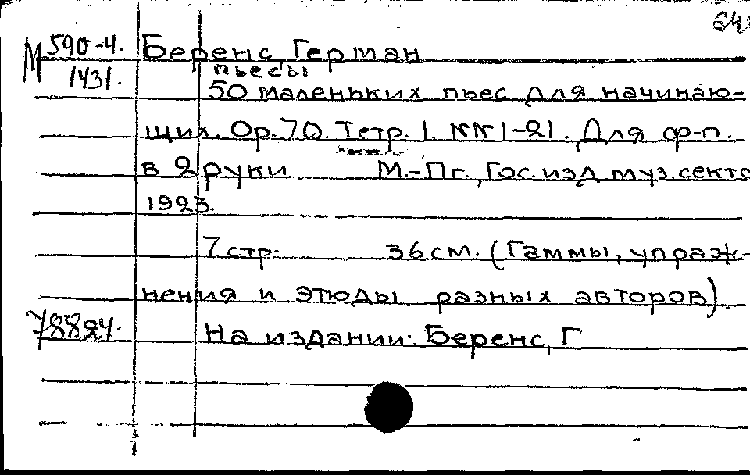 М 590-4. Беренс Герман
1431. пьесы
50 маленьких пьес для начинаю-
щих. Ор. 70. Тетр. 1. NN 1-21. Для ф-п.
в 2 руки М.-Пг., Гос. изд. муз. секто
1923.
7 стр. 36 см. (Гаммы, упраж-
нения и этюды разных авторов).
78824. На издании: Беренс, Г